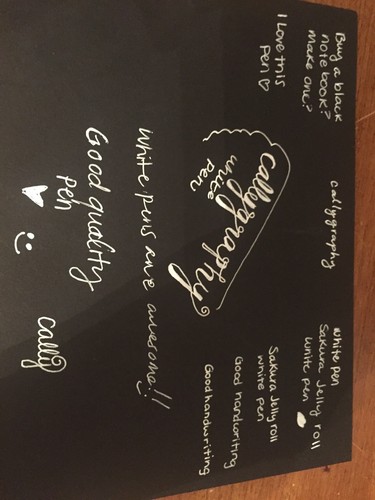 Buy a black
note book?
make one?
I Love this
pen ♡
callygraphy
white pen
Sakura Jelly roll
white pen
callygraphy
white
pen
Sakura Jelly roll
white pen
Good handwriting
Good handwriting
White pens are awesome!!
Good quality
pen
cally